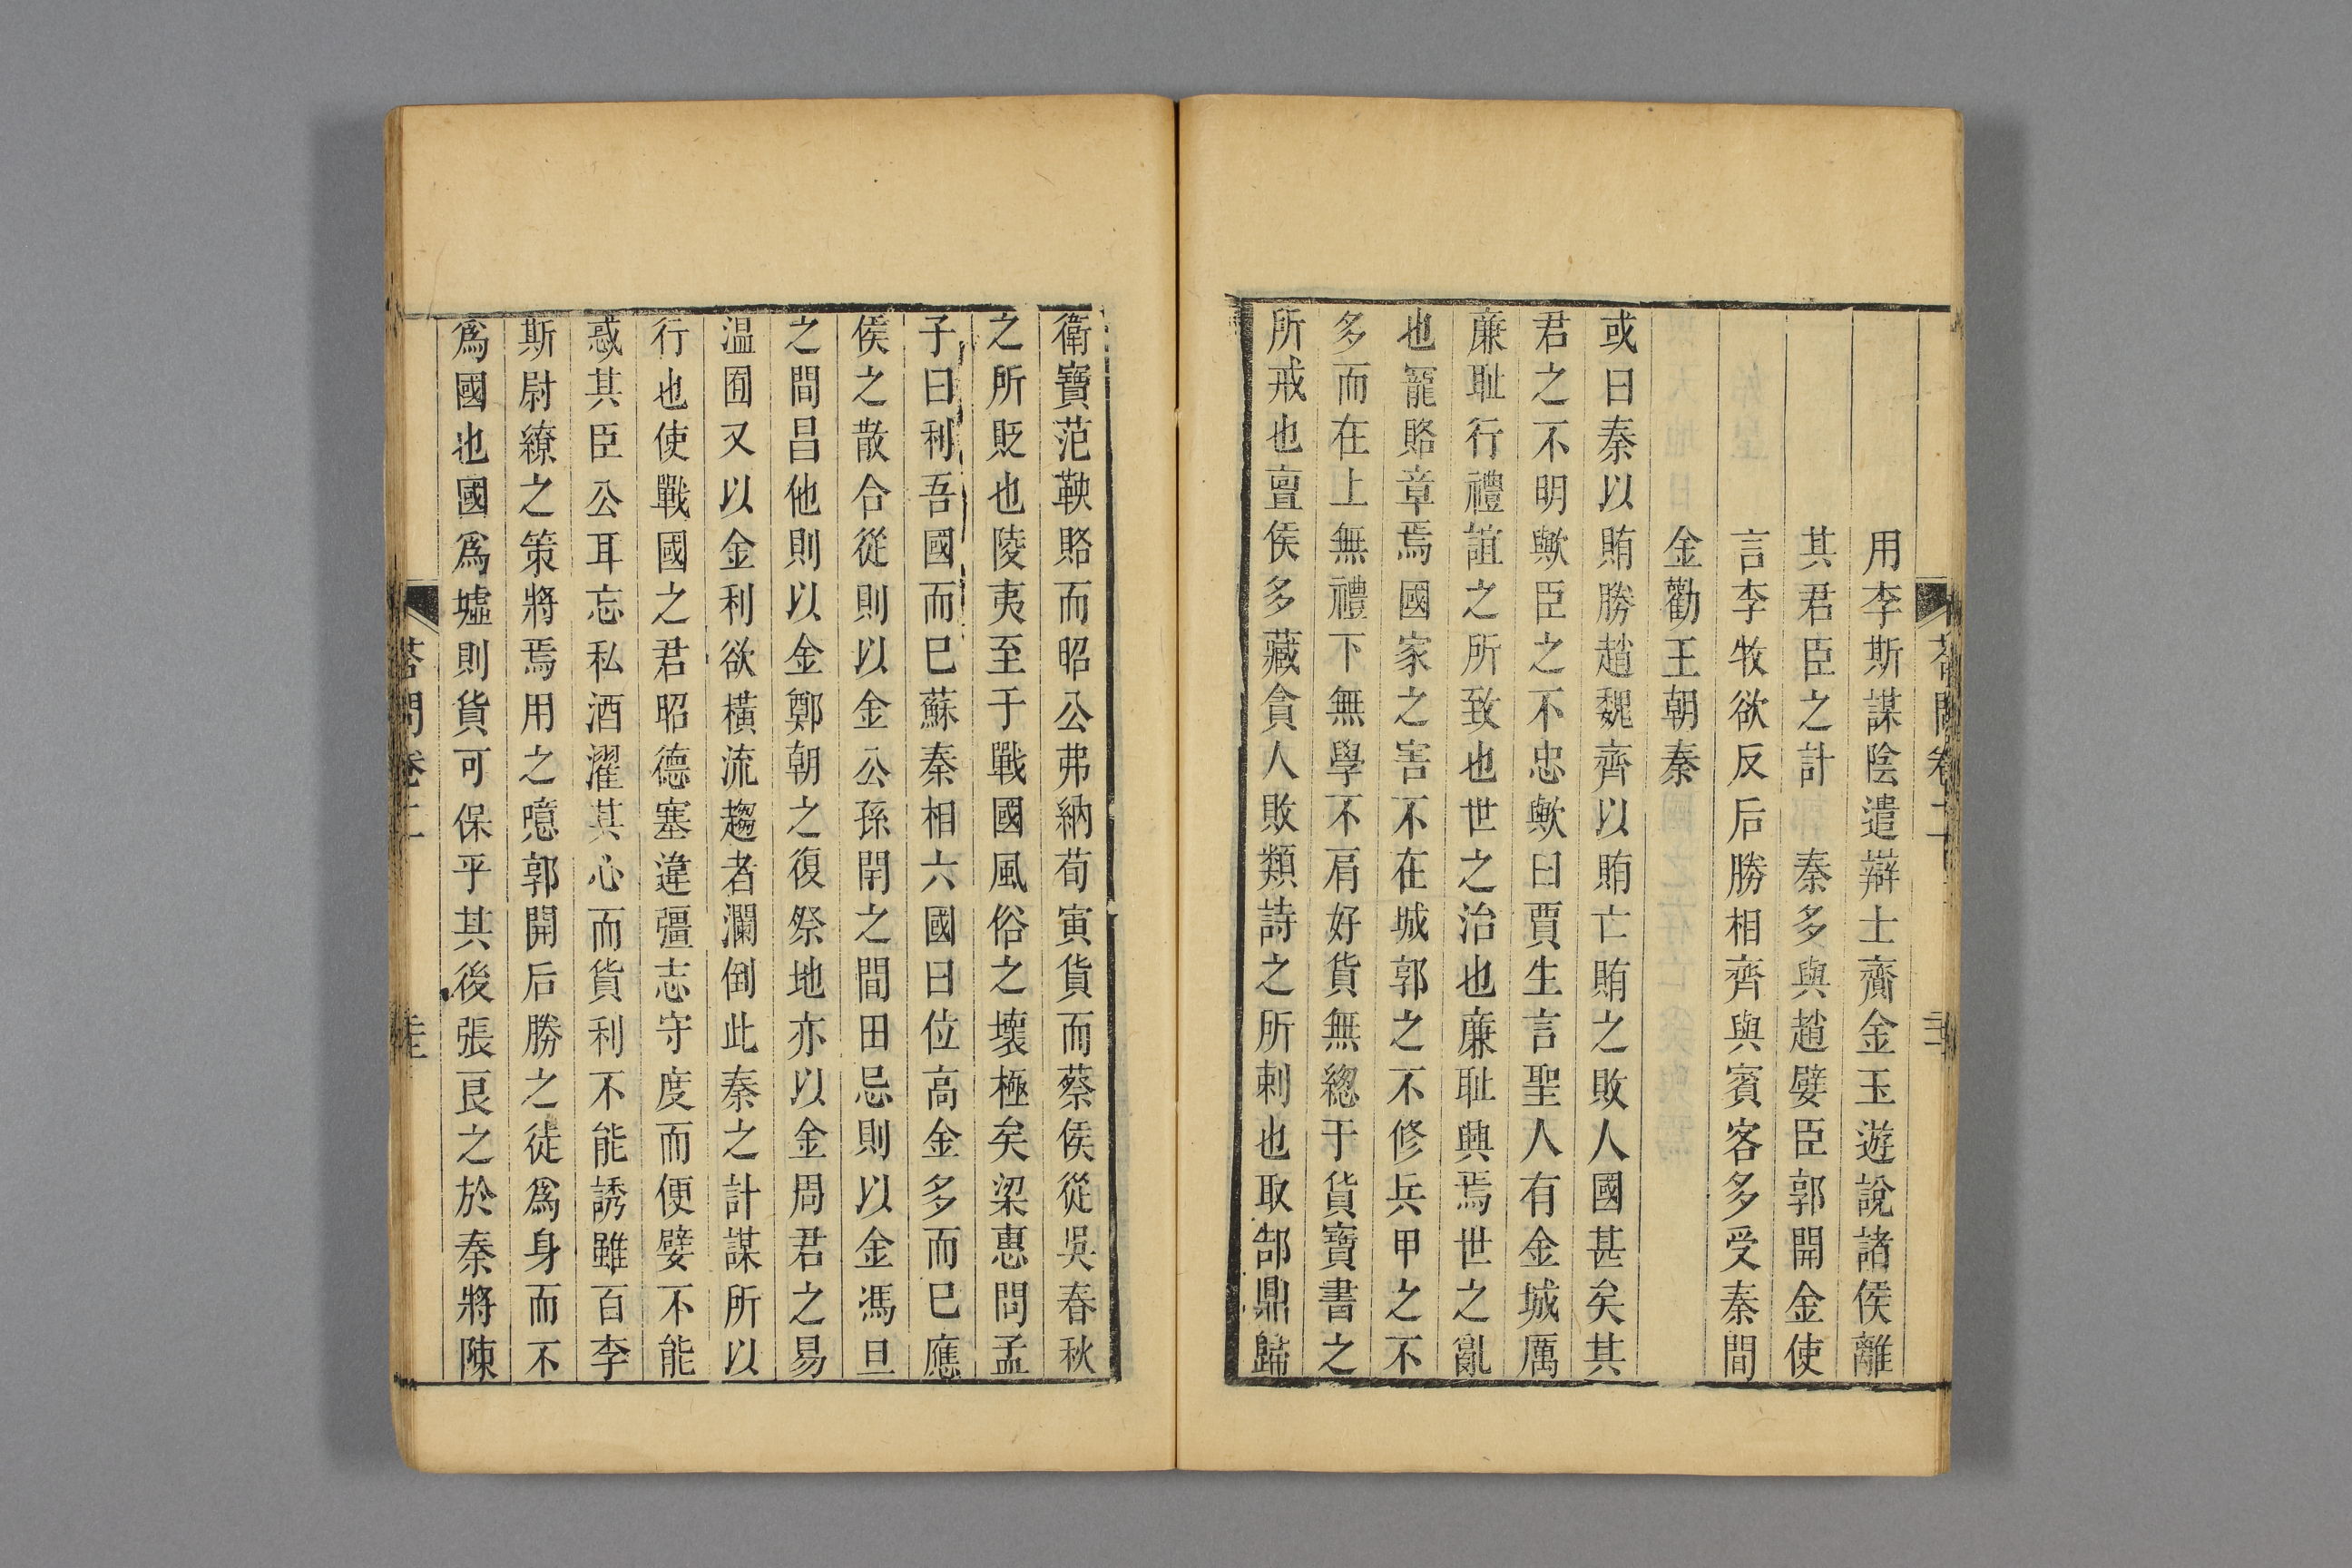 用李斯謀陰遣辯士齎金玉遊說諸侯離
其君臣之計 秦多與趙嬖臣郭開金使
言李牧欲反后勝相齊與賓客多受秦間
金勸王朝秦
或曰秦以賄勝趙魏齊以賄亡賄之敗人國甚矣其
君之不明歟臣之不忠歟曰賈生言聖人有金城厲
廉耻行禮誼之所致也世之治也廉耻興焉世之亂
也寵賂章焉國家之害不在城郭之不修兵甲之不
多而在上無禮下無學不肩好貨無總于貨寶書之
所戒也亶侯多藏貪人敗類詩之所刺也取郜鼎歸
衛寶范鞅賂而昭公弗納荀寅貨而蔡侯從吳春秋
之所貶也陵夷至于戰國風俗之壞極矣梁惠問孟
子曰利吾國而巳蘇秦相六國曰位高金多而巳應
侯之散合從則以金公孫閈之間田忌則以金馮旦
之間昌他則以金鄭朝之復祭地亦以金周君之易
温囿又以金利欲橫流趨者瀾倒此秦之計謀所以
行也使戰國之君昭德塞違彊志守度而便嬖不能
惑其臣公耳忘私洒濯其心而貨利不能誘雖百李
斯尉繚之策將焉用之噫郭開后勝之徒爲身而不
爲國也國爲墟則貨可保乎其後張良之於秦將陳
荅問卷二